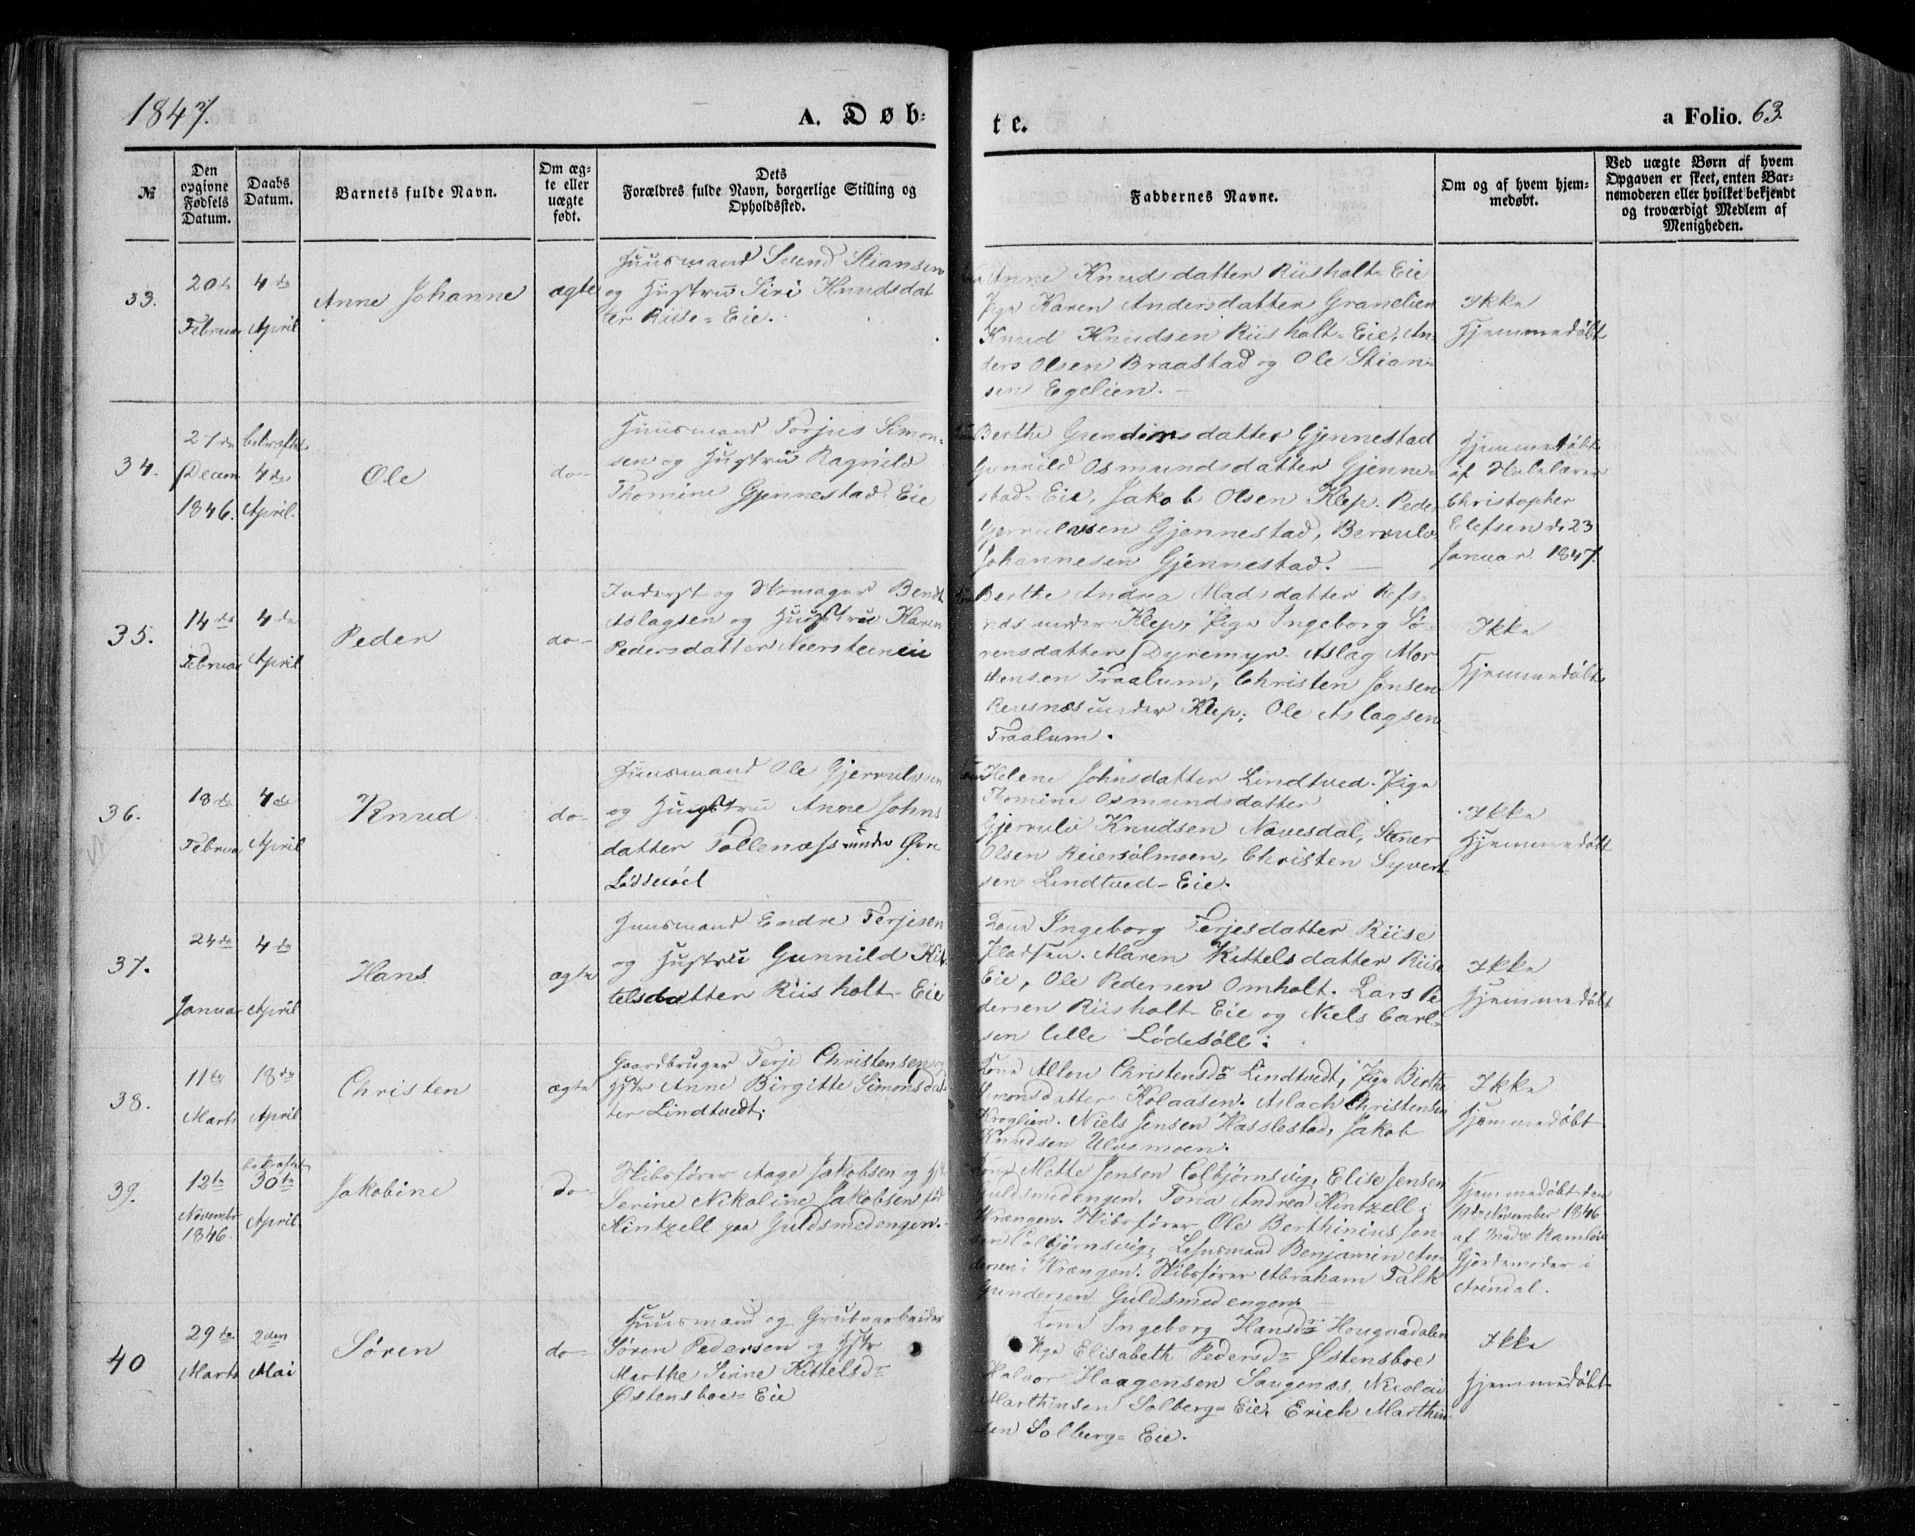 1847.
A. Døb-
te.
a Folio. 63.
№
Den opgivne Fødsels Datum.
Daabs Datum.
Barnets fulde Navn.
Om ægte eller uægte født.
Dets
Forældres fulde Navn, borgerlige Stilling og
Opholdssted.
Faddernes Navne.
Om og af hvem hjem-
medøbt.
Ved uægte Børn af hvem
Opgaven er skeet, enten Bar-
nemoderen eller hvilket bekjendt
og troværdigt Medlem af
Menigheden.
33.
20de
Februar
4de
April
Anne Johanne
ægte
Huusmand Svend Stiansen
og Hustru Siri Knudsdat
ter Riise-Eie.
Anne Knudsdatter Riisholt-Eie
Pige Karen Andersdatter Granelien
Knud Knudsen Riisholt-Eie, An-
ders Olsen Braastad og Ole Stian-
sen Egelien.
Ikke
Hjemmedøbt
34.
27de
Decem
1846.
bekræftet
4de
April.
Ole
do-
Huusmand Torjus Simon-
sen og Hustru Ragnild
Thomine Gjennestad-Eie
Berthe Gundersdatter Gjennestad
Gunnild Osmundsdatter Gjenne-
stad-Eie, Jakob Olsen Klep. Peder
Gjerrulvsen Gjennestad,
Johannesen Gjennestad.
Hjemmedøbt
af Skolelærer
Christopher
Elefsen d. 23
Januar 1847.
35.
14de
Februar
4de
April
Peder
do-
Inderst og Skomager Bendt
Aslagsen og Hustru Karen
Pedersdatter Neersteneie
Berthe Andrea Madsdatter Refs-
næs under Klep, Pige Ingeborg Sø-
rensdatter Dyremyr. Aslag Mor
thensen Traalum, Christen Jensen
Revsnæs under Klep; Ole Aslagsen
Traalum.
Ikke
Hjemmedøbt
36.
18de
Februar
4de
April
Knud
do-
Huusmand Ole Gjerrulvsen
og Hustru Anne Johns
datter Tollenæss under Øvre
Løddesøel
Helene Johnsdatter Lindtved. Pige
Thomine Osmundsdatter
Gjerrulv Knudsen Navesdal, Stener
Olsen Reiersølmoen, Christen Syvert
sen Lindtved-Eie.
Ikke
Hjemmedøbt
37.
24de
Januar
4de
April
Hans
ægte
Huusmand Endre Terjesen
og Hustru Gunnild Kit
telsdatter Riisholt-Eie
Kone Ingeborg Terjesdatter Riise
Pladsen. Maren Kittelsdatter Riise
Eie, Ole Pedersen Omholt. Lars Pe
dersen Riisholt-Eie og Niels Carl-
sen lille Lødesøll.
Ikke
Hjemmedøbt
38.
11te
Marts
18de
April
Christen
ægte
Gaardbruger Terje Christensen og
Hstr Anne Birgitte Simonsdat
ter Lindtvedt.
Kone Christensdr Lindtvedt, Pige Birthe
Simonsdatter Kolaasen. Aslach Christensen
Kroglien. Niels Jensen Hasslestad, Jakob
Knudsen Ulvsmoen.
Ikke
Hjemmedøbt
39.
12te
Novembr
1846.
bekræftet
30te
April
Jakobine
do-
Skibsfører Aage Jakobsen og Hstr
Serine Nikoline Jakobsen fød
Hintzell paa Guldsmedengen.
Kone Mette Jensen Colbjørnsvig, Elise Jensen
Guldsmedengen. Tona Andrea Hintzell
Vrængen. Skibsfører Ole Berthinius Jen-
sen Colbjørnsvig, Benjamin An-
dersen Vrængen. Skibsfører Abraham Falk
Gundersen Guldsmedengen.
Hjemmedøbt den
19de November 1846
af Mad. Ramløv
Gjordemoder i
Arendal.
40
29de
Marts
2den
Mai
Søren
do-
Huusmand og Grubearbeider
Søren Pedersen og Hstr
Marthe Serine Kittelsdr
Østensboe-Eie
Kone Ingeborg Hansdr Hougaadalen
Pige Elisabeth Pedersdr Østensboe
Halvor Haagensen Saugenæs, Nicolai
Marthinsen Solberg-Eie, Erich Marthin
sen Solberg-Eie.
Ikke
Hjemmedøbt